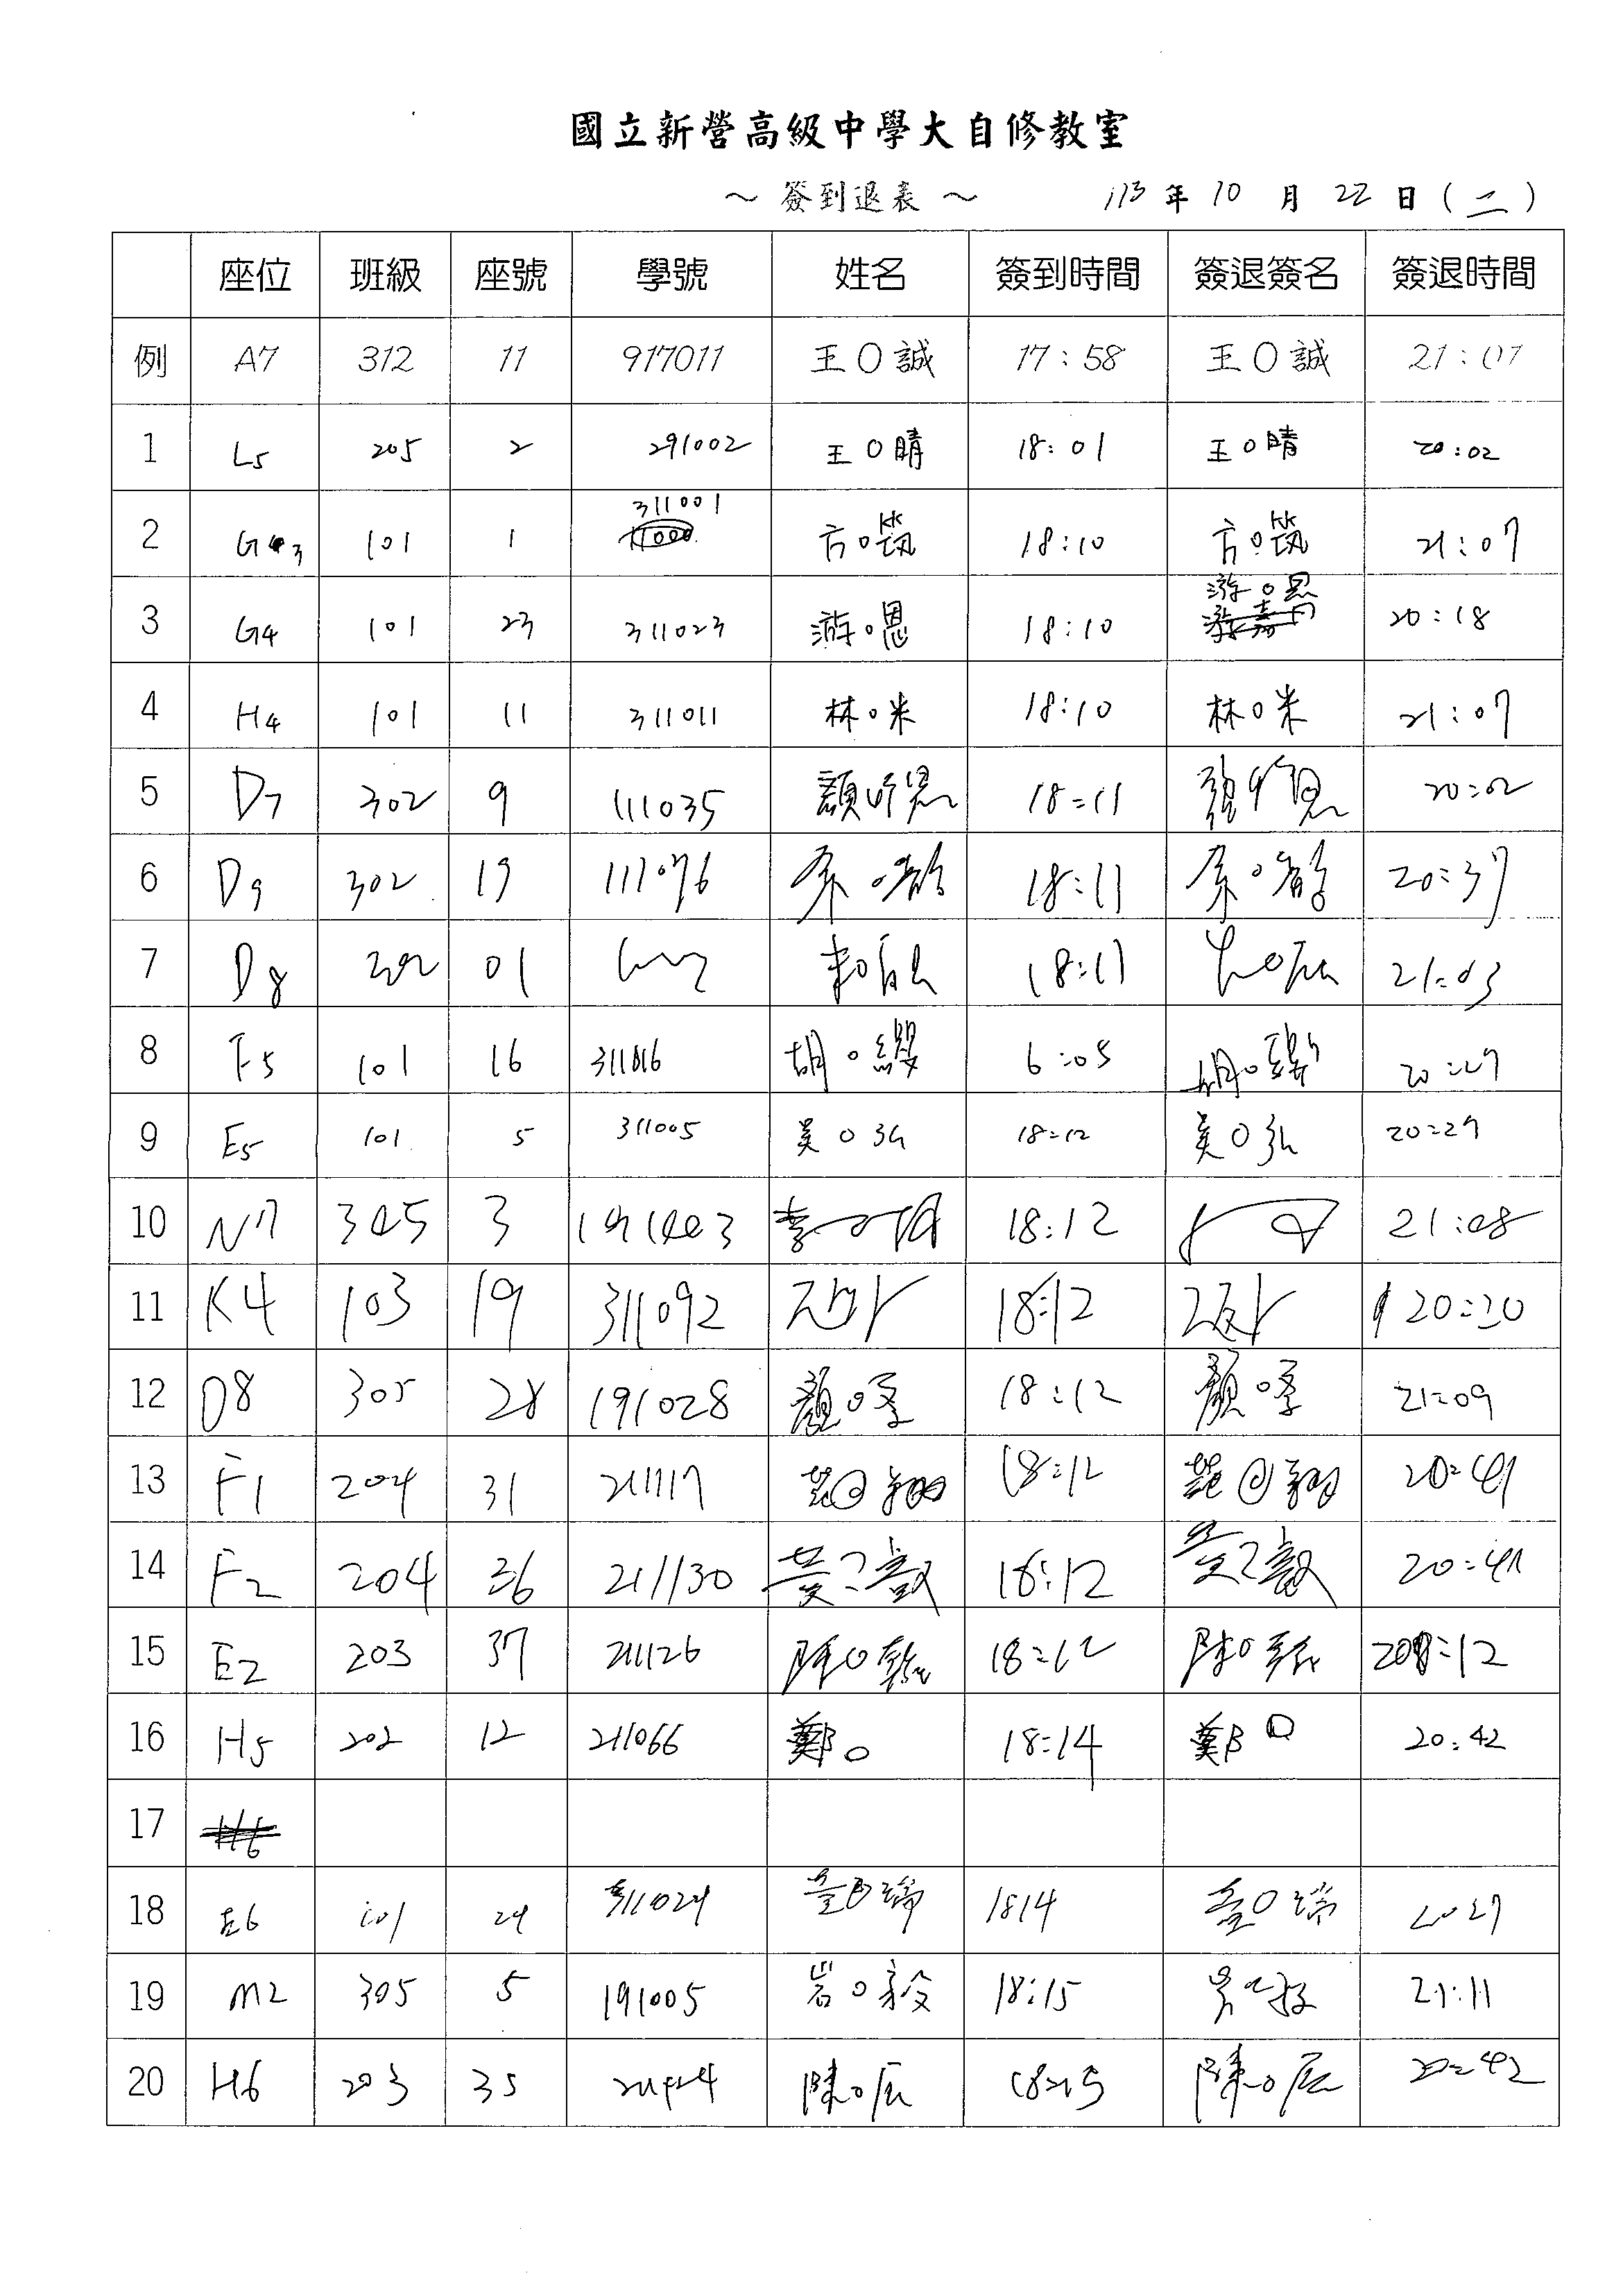 國立新營高級中學大自修教室
～ 簽到退表 ～ 113 年 10 月 22 日 (二)
座位 班級 座號 學號 姓名 簽到時間 簽退簽名 簽退時間
例 A7 312 11 917011 王〇誠 17:58 王〇誠 21:07
1 L5 205 2 291002 王〇晴 18:01 王〇晴 20:02
311001
2 G 3 101 1 方〇筑 18:10 方〇筑 21:07
游〇恩
3 G4 101 23 311023 游〇恩 18:10 20:18
4 H4 101 11 311011 林〇米 18:10 林〇米 21:07
5 D7 302 9 111035 顏 恩 18:11 恩 20:02
6 D9 302 19 111076 18:11 20:37
7 D8 302 01 18:11 21:03
8 F5 101 16 311016 胡〇纓 6:05 胡〇纓 20:27
9 E5 101 5 311005 吳〇泓 18:12 吳〇泓 20:29
10 N7 305 3 191003 李〇 18:12 21:08
11 K4 103 19 311092 18:12 20:30
12 D8 305 28 191028 顏〇 18:12 顏〇 21:09
13 F1 204 31 211117 〇翔 18:12 〇翔 20:41
14 F2 204 36 211130 黃 18:12 黃 20:41
15 E2 203 37 211126 陳〇 18:12 陳〇 20:12
16 H5 202 12 211066 鄭〇 18:14 鄭〇 20:42
17
18 E6 101 24 311024 〇瑞 1814 〇瑞 2027
19 M2 305 5 191005 〇毅 18:15 21:11
20 H6 203 35 陳〇辰 18:15 陳〇辰 20:42